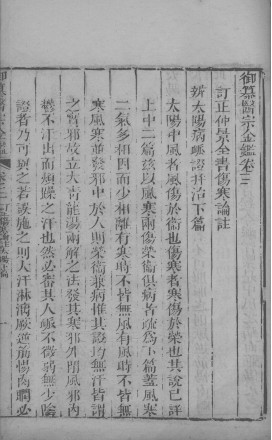 御纂醫宗金鑑卷三
訂正仲景全書傷寒論註
辨太陽病脈證并治下篇
太陽中風者風傷於衛也傷寒者寒傷於榮也其說已詳
上中二篇茲以風寒兩傷榮衛俱病者疏為下篇蓋風寒
二氣多相因而少相離有寒時不皆無風有風時不皆無
寒風寒並發邪中於人則榮衛兼病惟其證均無汗皆謂
之實邪故立大青龍兩解之法發其寒邪外閉風邪內
鬱不汗出而煩躁之汗也然必審其人脈不微弱無少陰
證者乃可與之若誤施之則大汗淋漓厥逆筋惕肉瞤必
御纂醫宗金鑑
卷三